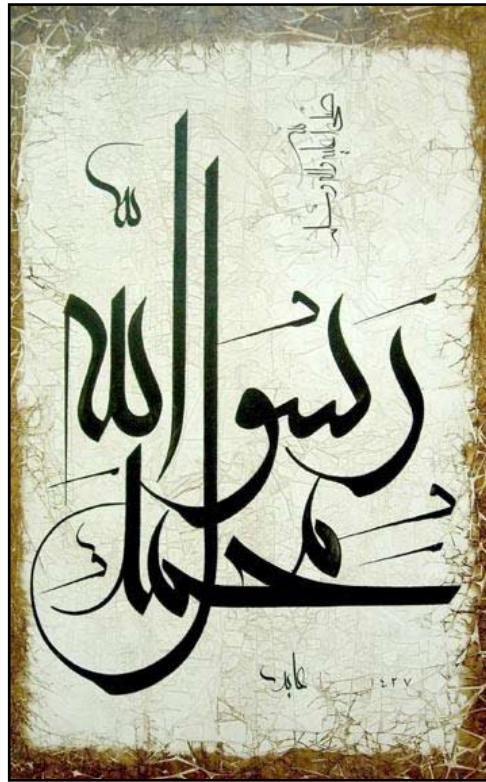 صلى الله عليه وآله وسلم
محمد
رسول الله
عابد ١٤٢٧